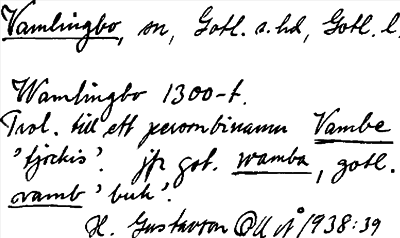 Vamlingbo, sn, Gotl. s. hd, Gotl. l.
Wamlingbo 1300-t.
Trol. till ett personbinamn Vambe
'tjockis'. jfr got. wamba, gotl.
vamb 'buk'.
H. Gustavson OUÅ 1938:39